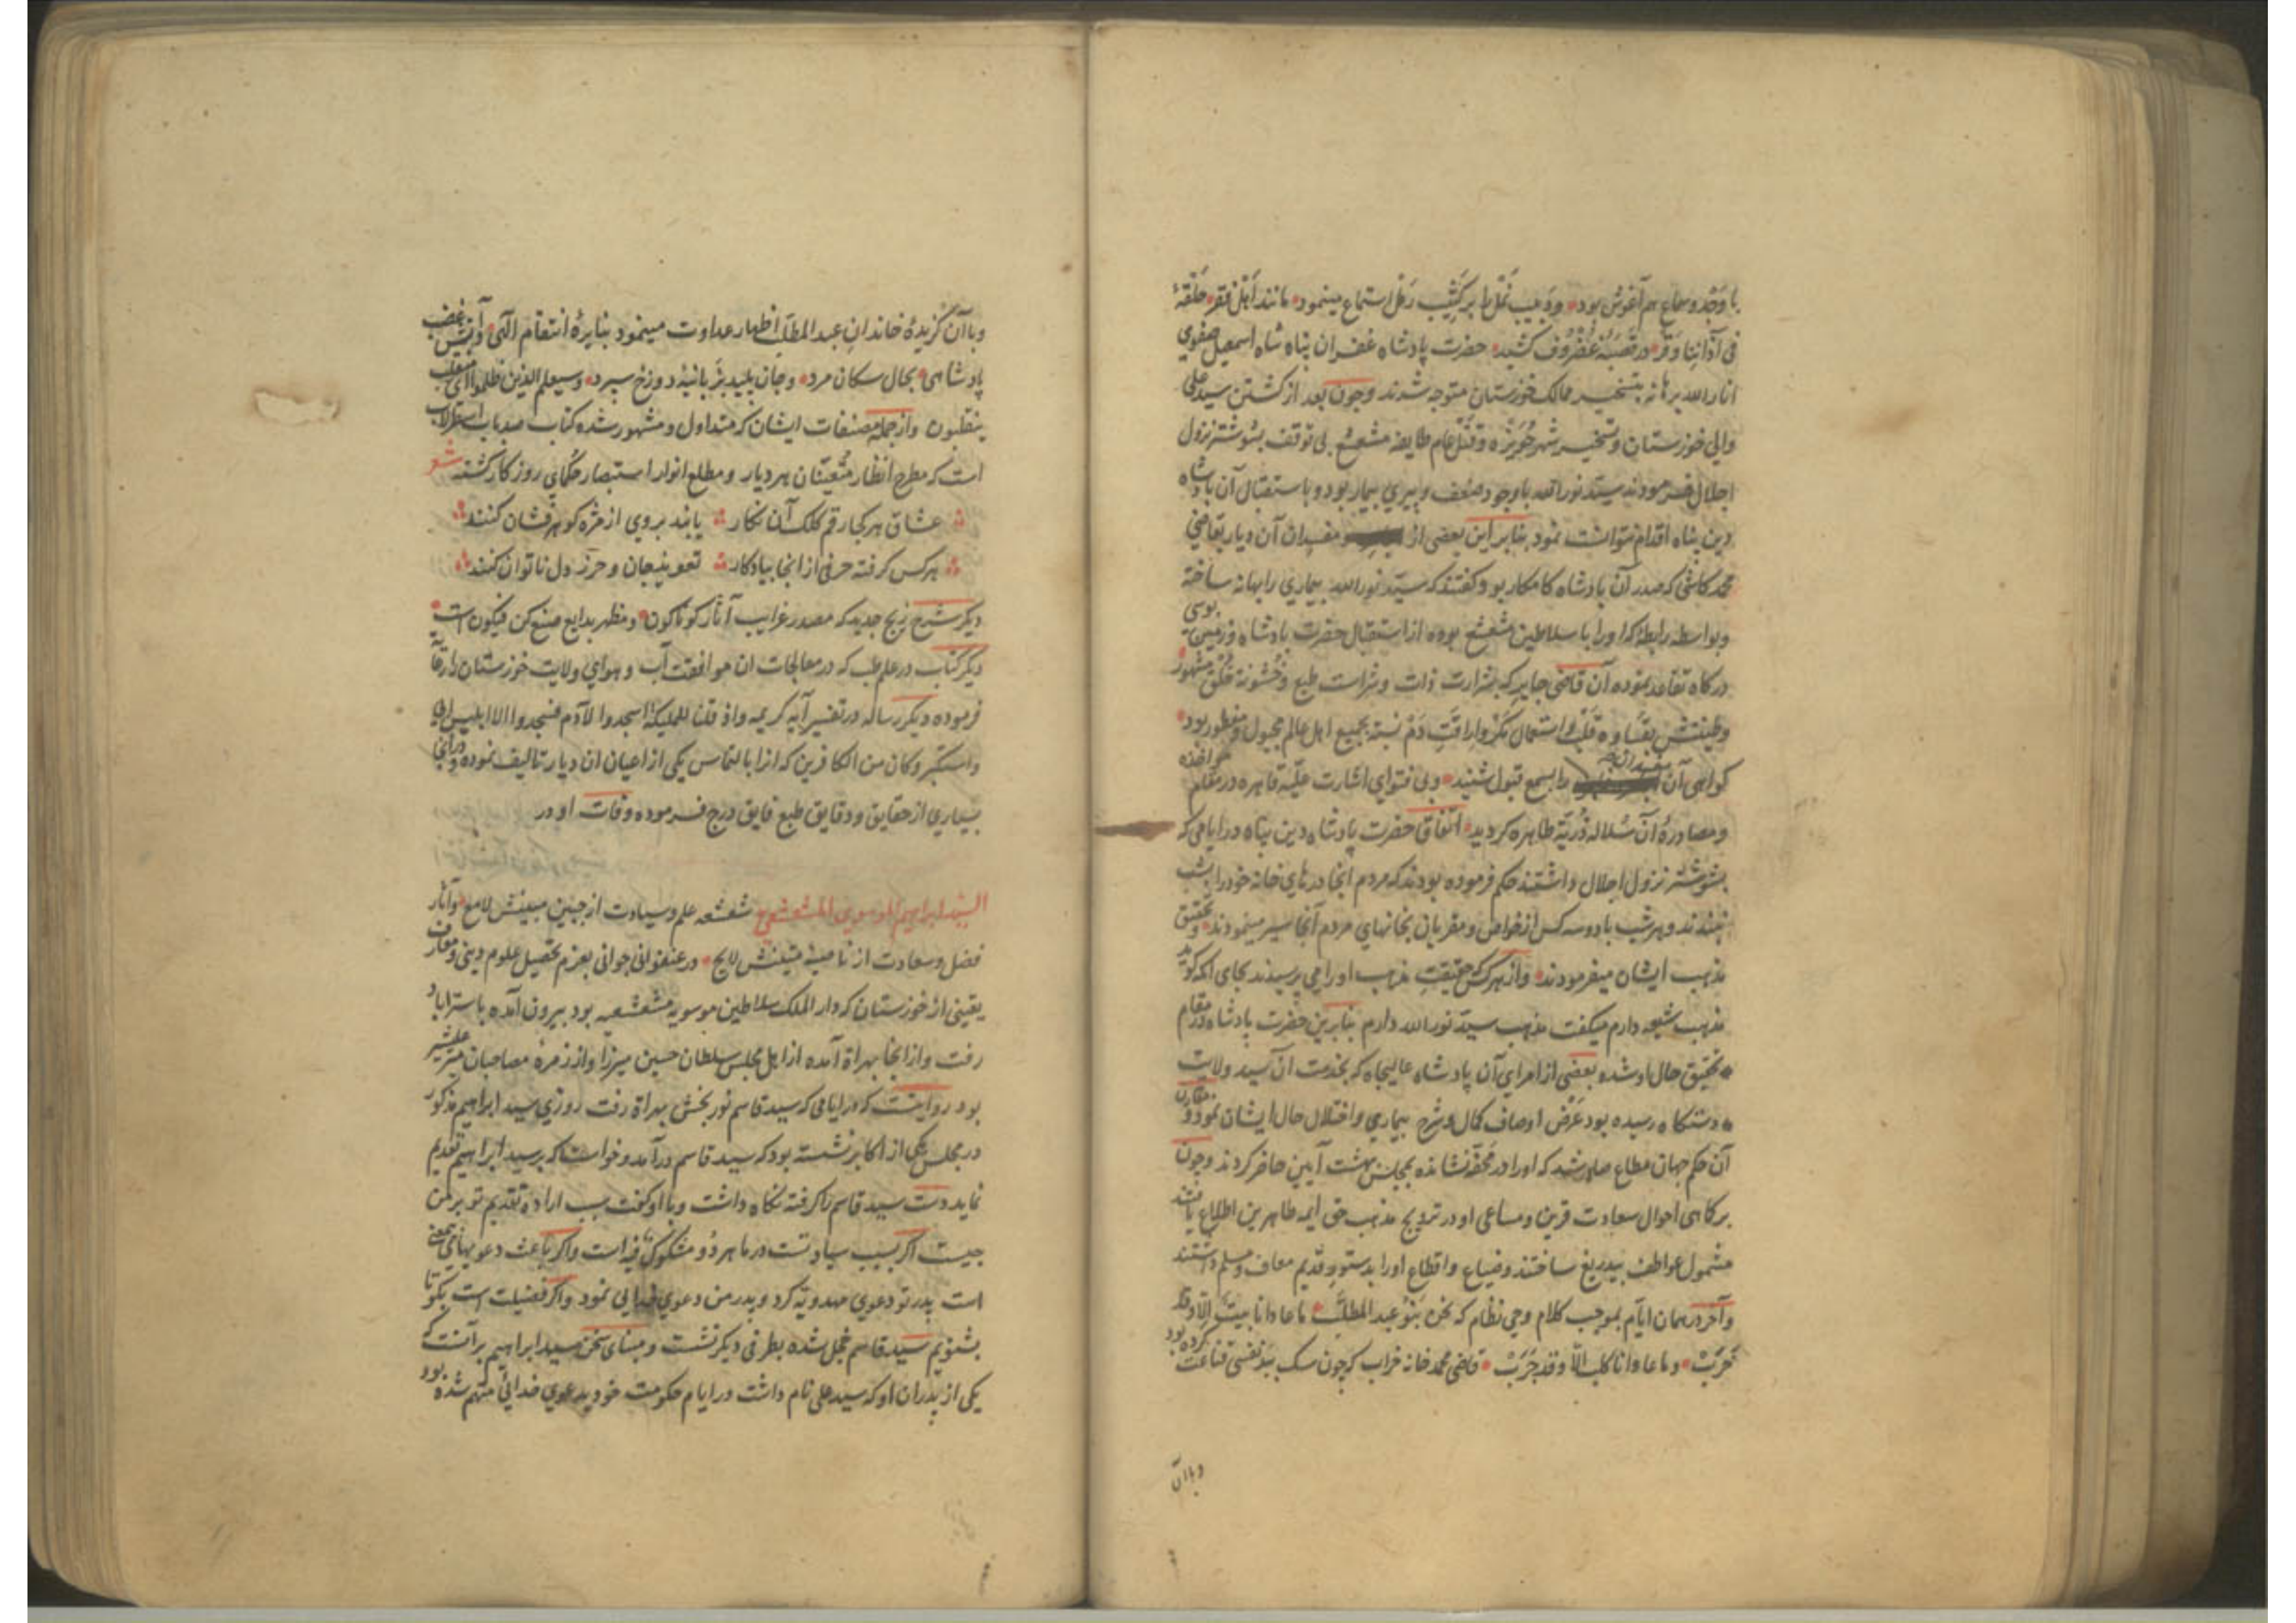 با وجد و سماع هم آغوش بود و دبیب نمل را بر کثیب رمل استماع مینمود مانند اهل فقر حلقهٔ
فی آذاننا وقر در قصبهٔ غضروف کشید حضرت پادشاه غفران پناه شاه اسمعیل صفوی
انار الله برهانه بتسخیر ممالک خوزستان متوجه شدند و چون بعد از کشتن سید علی
والی خوزستان و تسخیر شهر حویزه و قتل عام طایفه مشعشع بی توقف بشوشتر نزول
اجلال فرمودند سید نورالله با وجود ضعف و پیری بیمار بود و باستقبال آن پادشاه
دین پناه اقدام نتوانست نمود بنابر این بعضی از مفسدان آن دیار بقاضی
محمد کاشی که صدر آن پادشاه کامکار بود گفتند که سید نورالله بیماری را بهانه ساخته
و بواسطه رابطهٔ که او را با سلاطین مشعشع بوده از استقبال حضرت پادشاه و زمین بوسی
درگاه تقاعد نموده آن قاضی جابر که بشرارت ذات و شراست طبع و خشونة خلق مشهور
و طینتش بقساوه قلب و استعمال مکر و اراقت دم نسبة بجمیع اهل عالم مجبول و مفطور بود
گواهی آن مفسدان را بسمع قبول شنید و بی فتوای اشارت علیه قاهره در مقام مواخذه
و مصادرهٔ آن سلاله ذریة طاهره گردید اتفاقا حضرت پادشاه دین پناه در ایامی که
بشوشتر نزول اجلال داشتند حکم فرموده بودند که مردم انجا درهای خانه خود را بشب
نبندند و هر شب با دو سه کس از خواص و مقربان بخانهای مردم آنجا سیر مینمودند و تحقیق
مذهب ایشان میفرمودند و از هر کس حقیقت مذهب او را می پرسیدند بجای انکه گوید
مذهب شیعه دارم میگفت مذهب سید نورالله دارم بنابرین حضرت پادشاه در مقام
تحقیق حال او شده بعضی از امرای آن پادشاه عالیجاه که بخدمت آن سید ولایت
دستگاه رسیده بود عرض اوصاف کمال و شرح بیماری و اختلال حال ایشان نمود و مقارن
آن حکم جهان مطاع صادر شد که او را در محفه نشانده بمجلس بهشت آیین حاضر کردند و چون
بر کماهی احوال سعادت قرین و مساعی او در ترویج مذهب حق ایمه طاهرین اطلاع یافتند
مشمول عواطف بیدریغ ساختند و ضیاع و اقطاع او را بدستور قدیم معاف و مسلم داشتند
و آخر در همان ایام بموجب کلام وحی نظام که نحن بنو عبد المطلب ما عادانا بیت الا و قد
خرب و ما عادانا کلب الا و قد جرب قاضی محمد خانه خراب که چون سک ببد نفسی قناعت کرده بود
و با آن
و با آن گزیدهٔ خاندان عبد المطلب اظهار عداوت مینمود بنایرهٔ انتقام الهی و آتش غضب
پادشاهی بحال سکان مرد و جان پلید بزبانیهٔ دوزخ سپرد و سیعلم الذین ظلموا ای منقلب
ینقلبون و از جمله مصنفات ایشان که متداول و مشهور شده کتاب صد باب اسطرلاب
است که مطرح انظار متعینان هر دیار و مطلع انوار استبصار حکمای روزگار گشته شعر
عشاق هر کجا رقم کلک آن نگار یابند بر وی از مژه گوهرفشان کنند
هر کس گرفته حرفی از انجا بیادگار تعویذ جان و حرز دل ناتوان کنند
دیگر شرح زیج جدید که مصدر غرایب آثار گوناگون و مظهر بدایع صنع کن فیکون است
دیگر کتاب در علم طب که در معالجات ان موافقت آب و هوای ولایت خوزستان را رقم
فرموده دیگر رساله در تفسیر آیه کریمه و اذ قلنا للملیکة اسجدوا لآدم فسجدوا الا ابلیس ابی
و استکبر و کان من الکافرین که انرا بالتماس یکی از اعیان ان دیار تالیف نموده و در آنجا
بسیاری از حقایق و دقایق طبع فایق درج فرموده وفات او در
السید ابراهیم الموسوی المشعشعی شعشعه علم و سیادت از جبین مبینش لامع و آثار
فضل و سعادت از ناصیه متینش لایح در عنفوان جوانی بعزم تحصیل علوم دینی و معارف
یقینی از خوزستان که دار الملک سلاطین موسویه مشعشعیه بود بیرون آمده باستراباد
رفت و از انجا بهراة آمده از اهل مجلس سلطان حسین میرزا و از زمرهٔ مصاحبان میر علیشیر
بود روایتست که در ایامی که سید قاسم نوربخش بهراة رفت روزی سید ابراهیم مذکور
در مجلس یکی از اکابر نشسته بود که سید قاسم درآمد و خواست که بر سید ابراهیم تقدیم
نماید دست سید قاسم را گرفته نگاه داشت و با او گفت سبب اراده تقدیم تو بر من
چیست اگر بسبب سیادتست در ما هر دو مشکوک فیه است و اگر باعث دعویهای بیمعنی
است پدر تو دعوی مهدویة کرد و پدر من دعوی خدایی نمود و اگر فضیلت است بگو تا
بشنویم سید قاسم خجل شده بطرفی دیگر نشست و مبنای سخن سید ابراهیم بر آنست که
یکی از پدران او که سید علی نام داشت در ایام حکومت خود بدعوی خدائی متهم شده بود